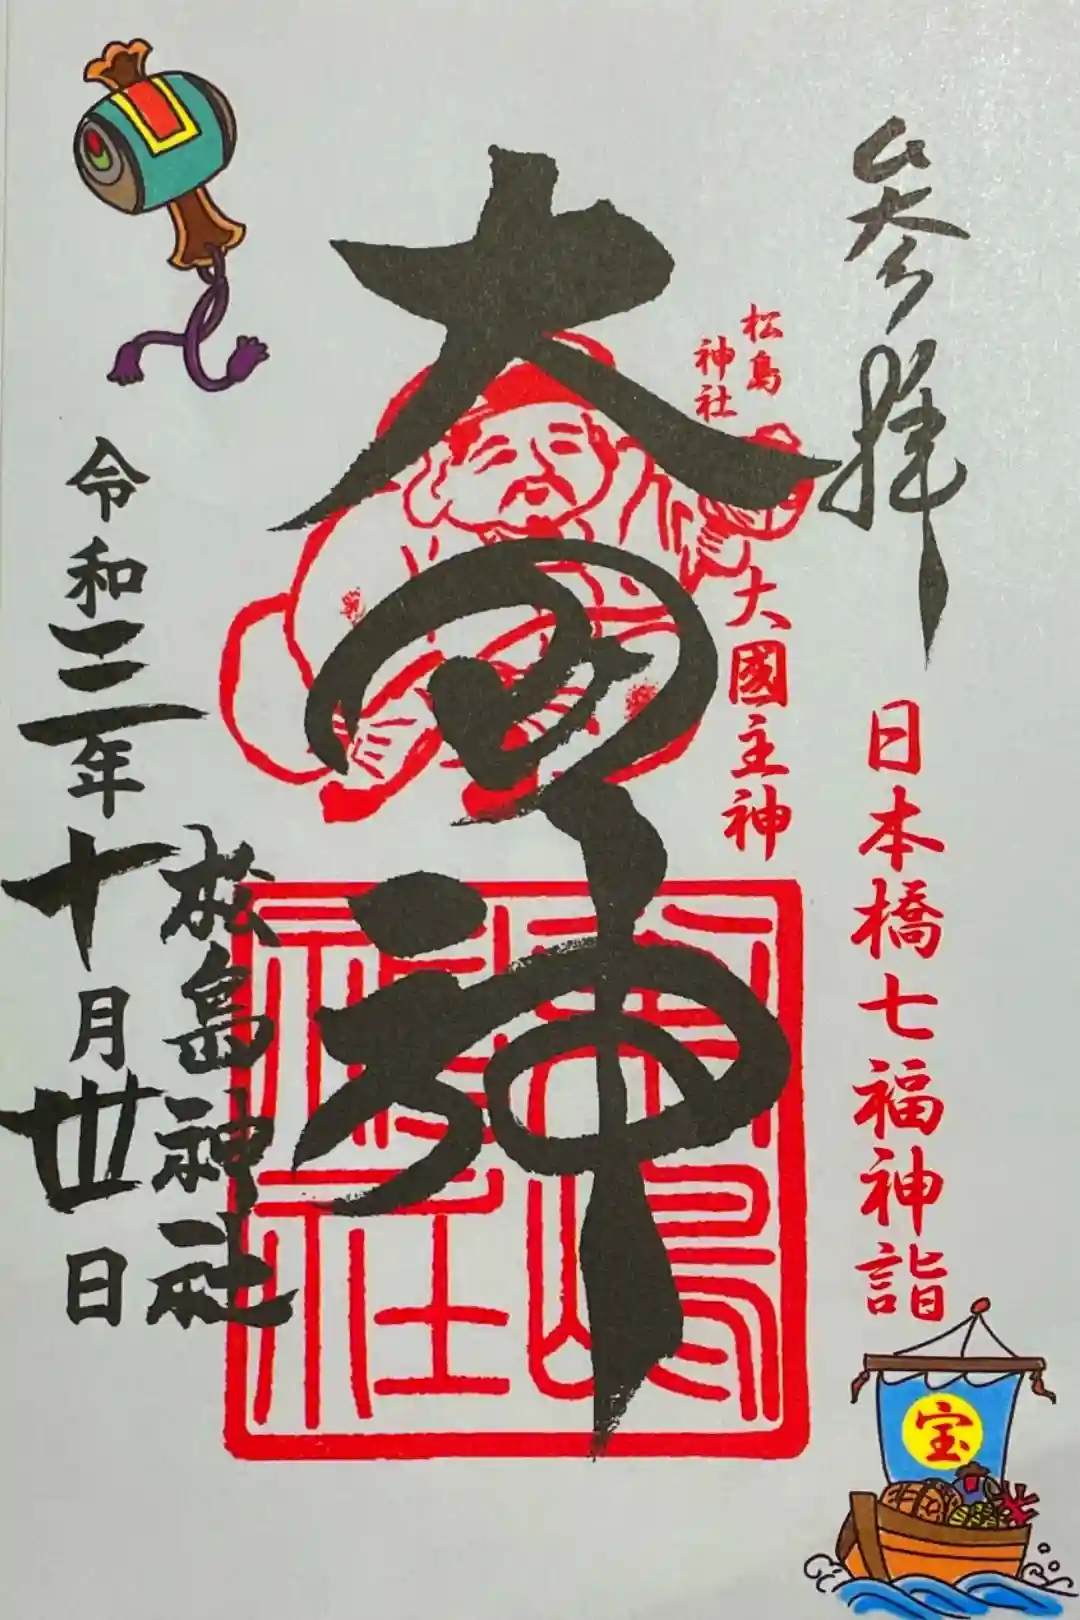 参拝
日本橋七福神詣
宝
松島
神社
大國主神
大国神
松島神社
令和三年十月丗日